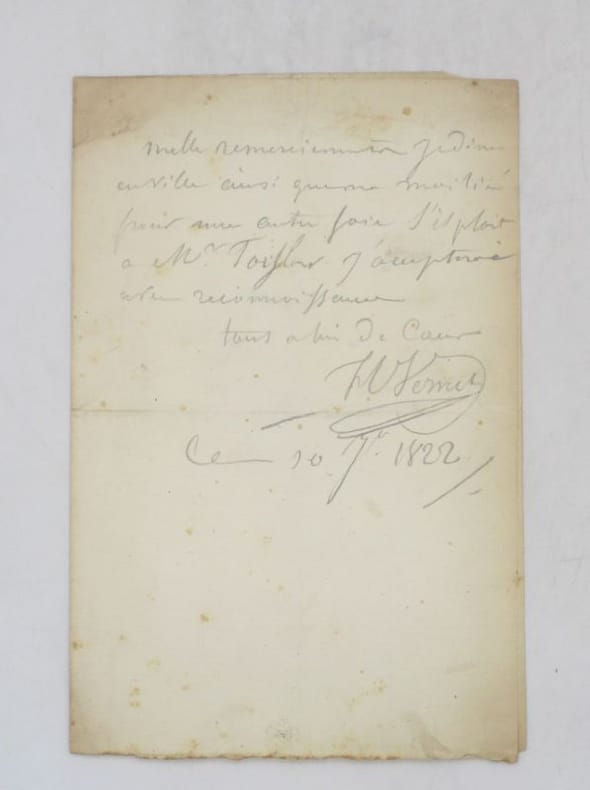 mille remerciements je dine
en ville ainsi que ma moitié
pour une autre fois s'il plait
a Mr j'accepterai
avec reconnoissance
tout a lui de Cœur
H Vernet
Ce 10 1822